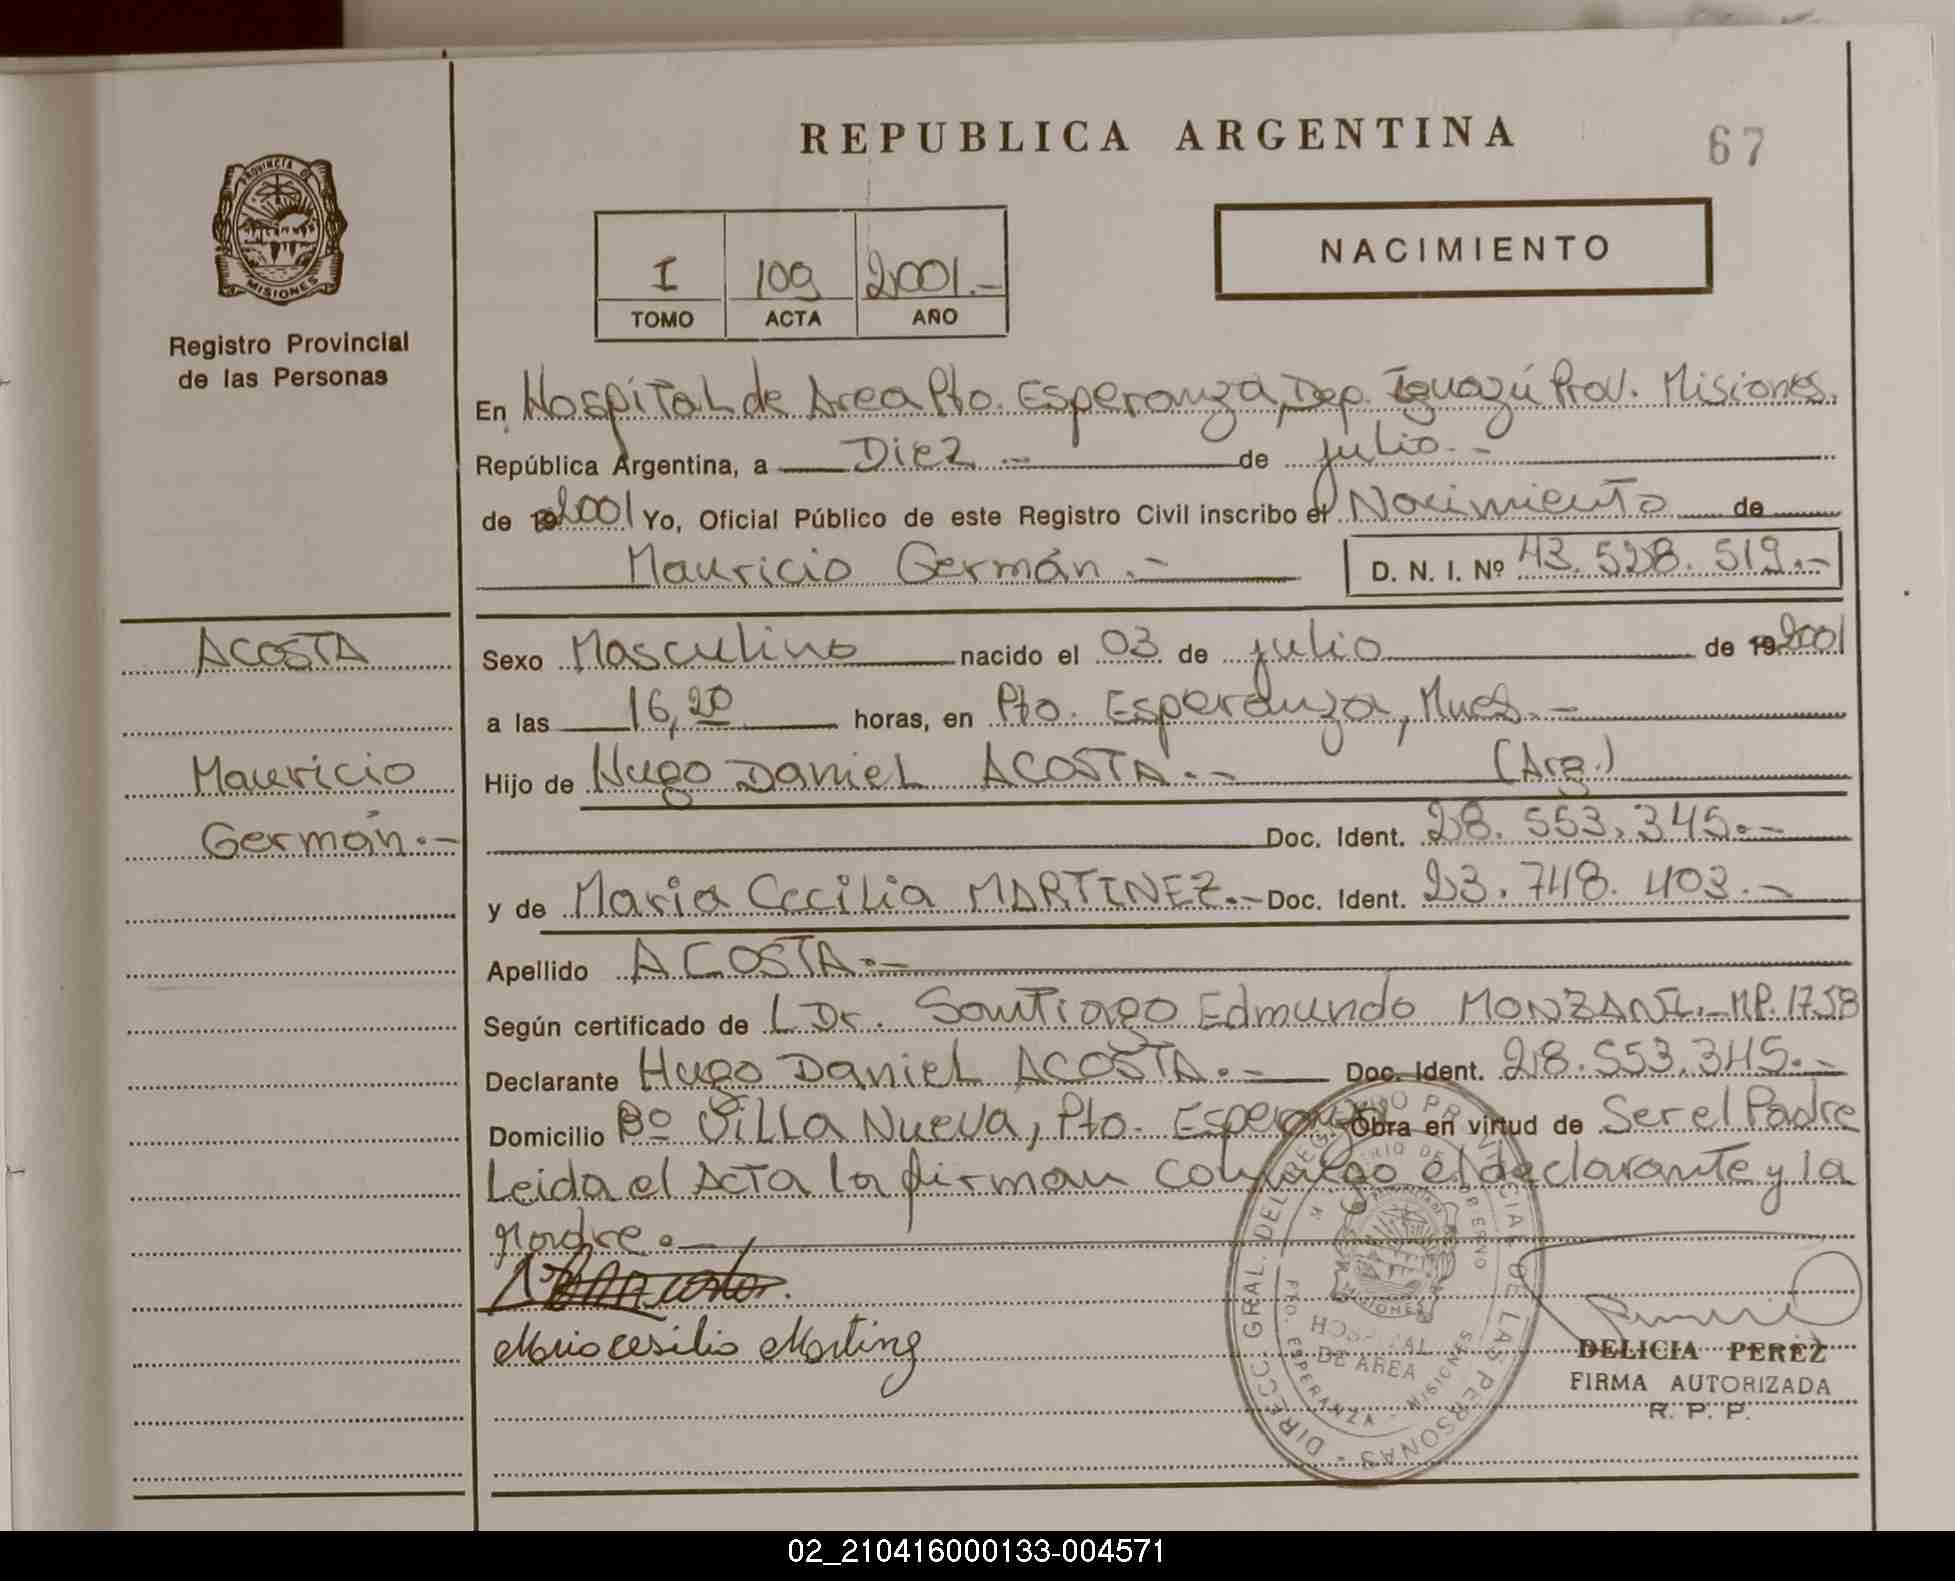 REPUBLICA ARGENTINA
67
PROVINCIA DE
MISIONES
Registro Provincial
de las Personas
I 109 2001.-
TOMO ACTA AÑO
NACIMIENTO
En Hospital de Area Pto. Esperanza, Dep. Iguazú Prov. Misiones.
República Argentina, a Diez.- de julio.-
de 2001 Yo, Oficial Público de este Registro Civil inscribo el Nacimiento de
Mauricio Germán.- D. N. I. Nº 43.528.519.-
ACOSTA
Mauricio
Germán.-
Sexo Masculino nacido el 03 de julio de 19 2001
a las 16,20 horas, en Pto. Esperanza, Mnes.-
Hijo de Hugo Daniel ACOSTA.- (Arg.)
Doc. Ident. 28.553.345.-
y de Maria Cecilia MARTINEZ.- Doc. Ident. 23.748.403.-
Apellido ACOSTA.-
Según certificado de L Dr. Santiago Edmundo MONZANI.- MP. 1758
Declarante Hugo Daniel ACOSTA.- Doc. Ident. 28.553.345.-
Domicilio Bº Villa Nueva, Pto. Esperanza Obra en virtud de Ser el Padre
Leida el Acta la firman conmigo el declarante y la
Madre.-
DIRECC. GRAL. DEL REGISTRO PROVINCIAL DE LAS PERSONAS
HOSPITAL
DE AREA
PTO. ESPERANZA - MISIONES
DELICIA PEREZ
FIRMA AUTORIZADA
R. P. P.
02_210416000133-004571